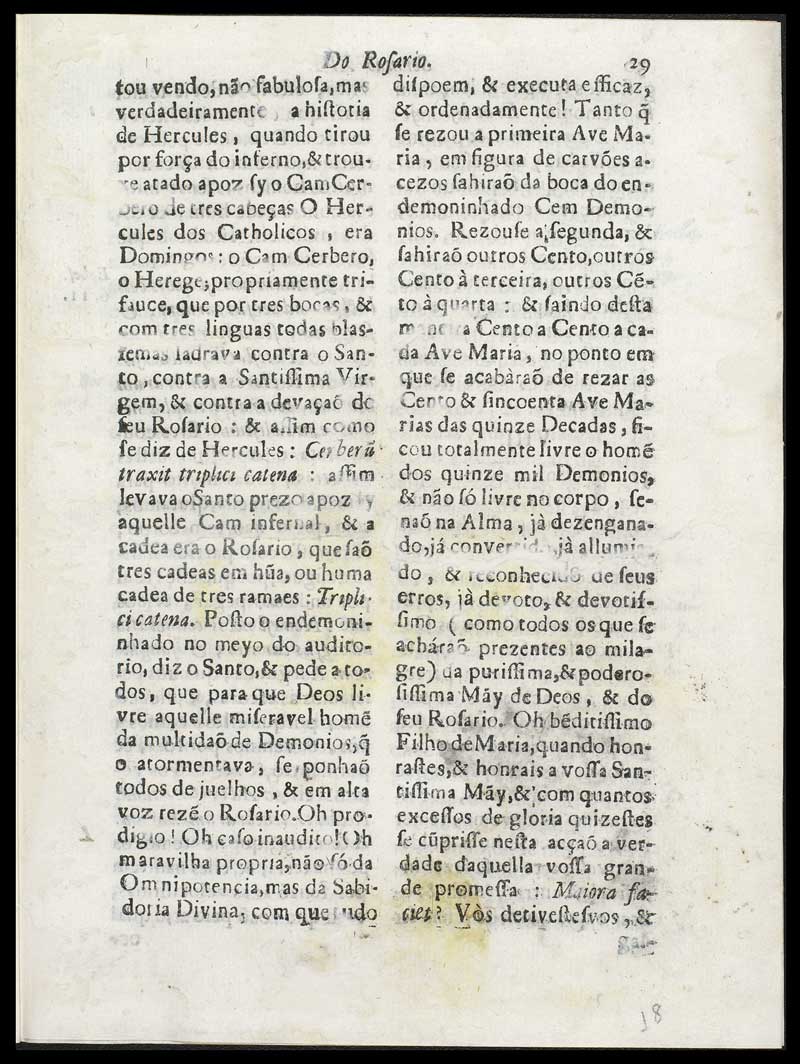 Do Roſario. 29
tou vendo, não fabuloſa, mas
verdadeiramente, a hiſtoria
de Hercules, quando tirou
por força do inferno, & trou-
xe atado apoz ſy o Cam Cer-
bero de tres cabeças O Her-
cules dos Catholicos, era
Domingos: o Cam Cerbero,
o Herege; propriamente tri-
fauce, que por tres bocas, &
com tres linguas todas blas-
femas ladrava contra o San-
to, contra a Santiſſima Vir-
gem, & contra a devaçaõ de
ſeu Roſario: & aſſim como
ſe diz de Hercules: Cerberũ
traxit triplici catena: aſſim
levava o Santo prezo apoz ſy
aquelle Cam infernal, & a
cadea era o Roſario, que ſaõ
tres cadeas em hũa, ou huma
cadea de tres ramaes: Tripli-
ci catena. Poſto o endemoni-
nhado no meyo do audito-
rio, diz o Santo, & pede a to-
dos, que para que Deos li-
vre aquelle miſeravel homẽ
da multidaõ de Demonios, q̃
o atormentava, ſe ponhaõ
todos de juelhos, & em alta
voz rezẽ o Roſario. Oh pro-
digio! Oh caſo inaudito! Oh
maravilha propria, não ſó da
Omnipotencia, mas da Sabi-
doria Divina, com que tudo
diſpoem, & executa efficaz,
& ordenadamente! Tanto q̃
ſe rezou a primeira Ave Ma-
ria, em figura de carvões a-
cezos ſahiraõ da boca do en-
demoninhado Cem Demo-
nios. Rezouſe a ſegunda, &
ſahiraõ outros Cento, outros
Cento à terceira, outros Cẽ-
to à quarta: & ſaindo deſta
a Cento a Cento a ca-
da Ave Maria, no ponto em
que ſe acabàraõ de rezar as
Cento & ſincoenta Ave Ma-
rias das quinze Decadas, fi-
cou totalmente livre o homẽ
dos quinze mil Demonios,
& não ſó livre no corpo, ſe-
naõ na Alma, jà dezengana-
do, já convertido, jà allumia-
do, & reconhecido de ſeus
erros, jà devoto, & devotiſ-
ſimo (como todos os que ſe
acháraõ prezentes ao mila-
gre) da puriſſima, & podero-
ſiſſima Mãy de Deos, & do
ſeu Roſario. Oh bẽditiſſimo
Filho de Maria, quando hon-
raſtes, & honrais a voſſa San-
tiſſima Mãy, & com quantos
exceſſos de gloria quizeſtes
ſe cũpriſſe neſta acçaõ a ver-
dade daquella voſſa gran-
de promeſſa: Maiora fa-
ciet? Vòs detiveſteſvos, &
18